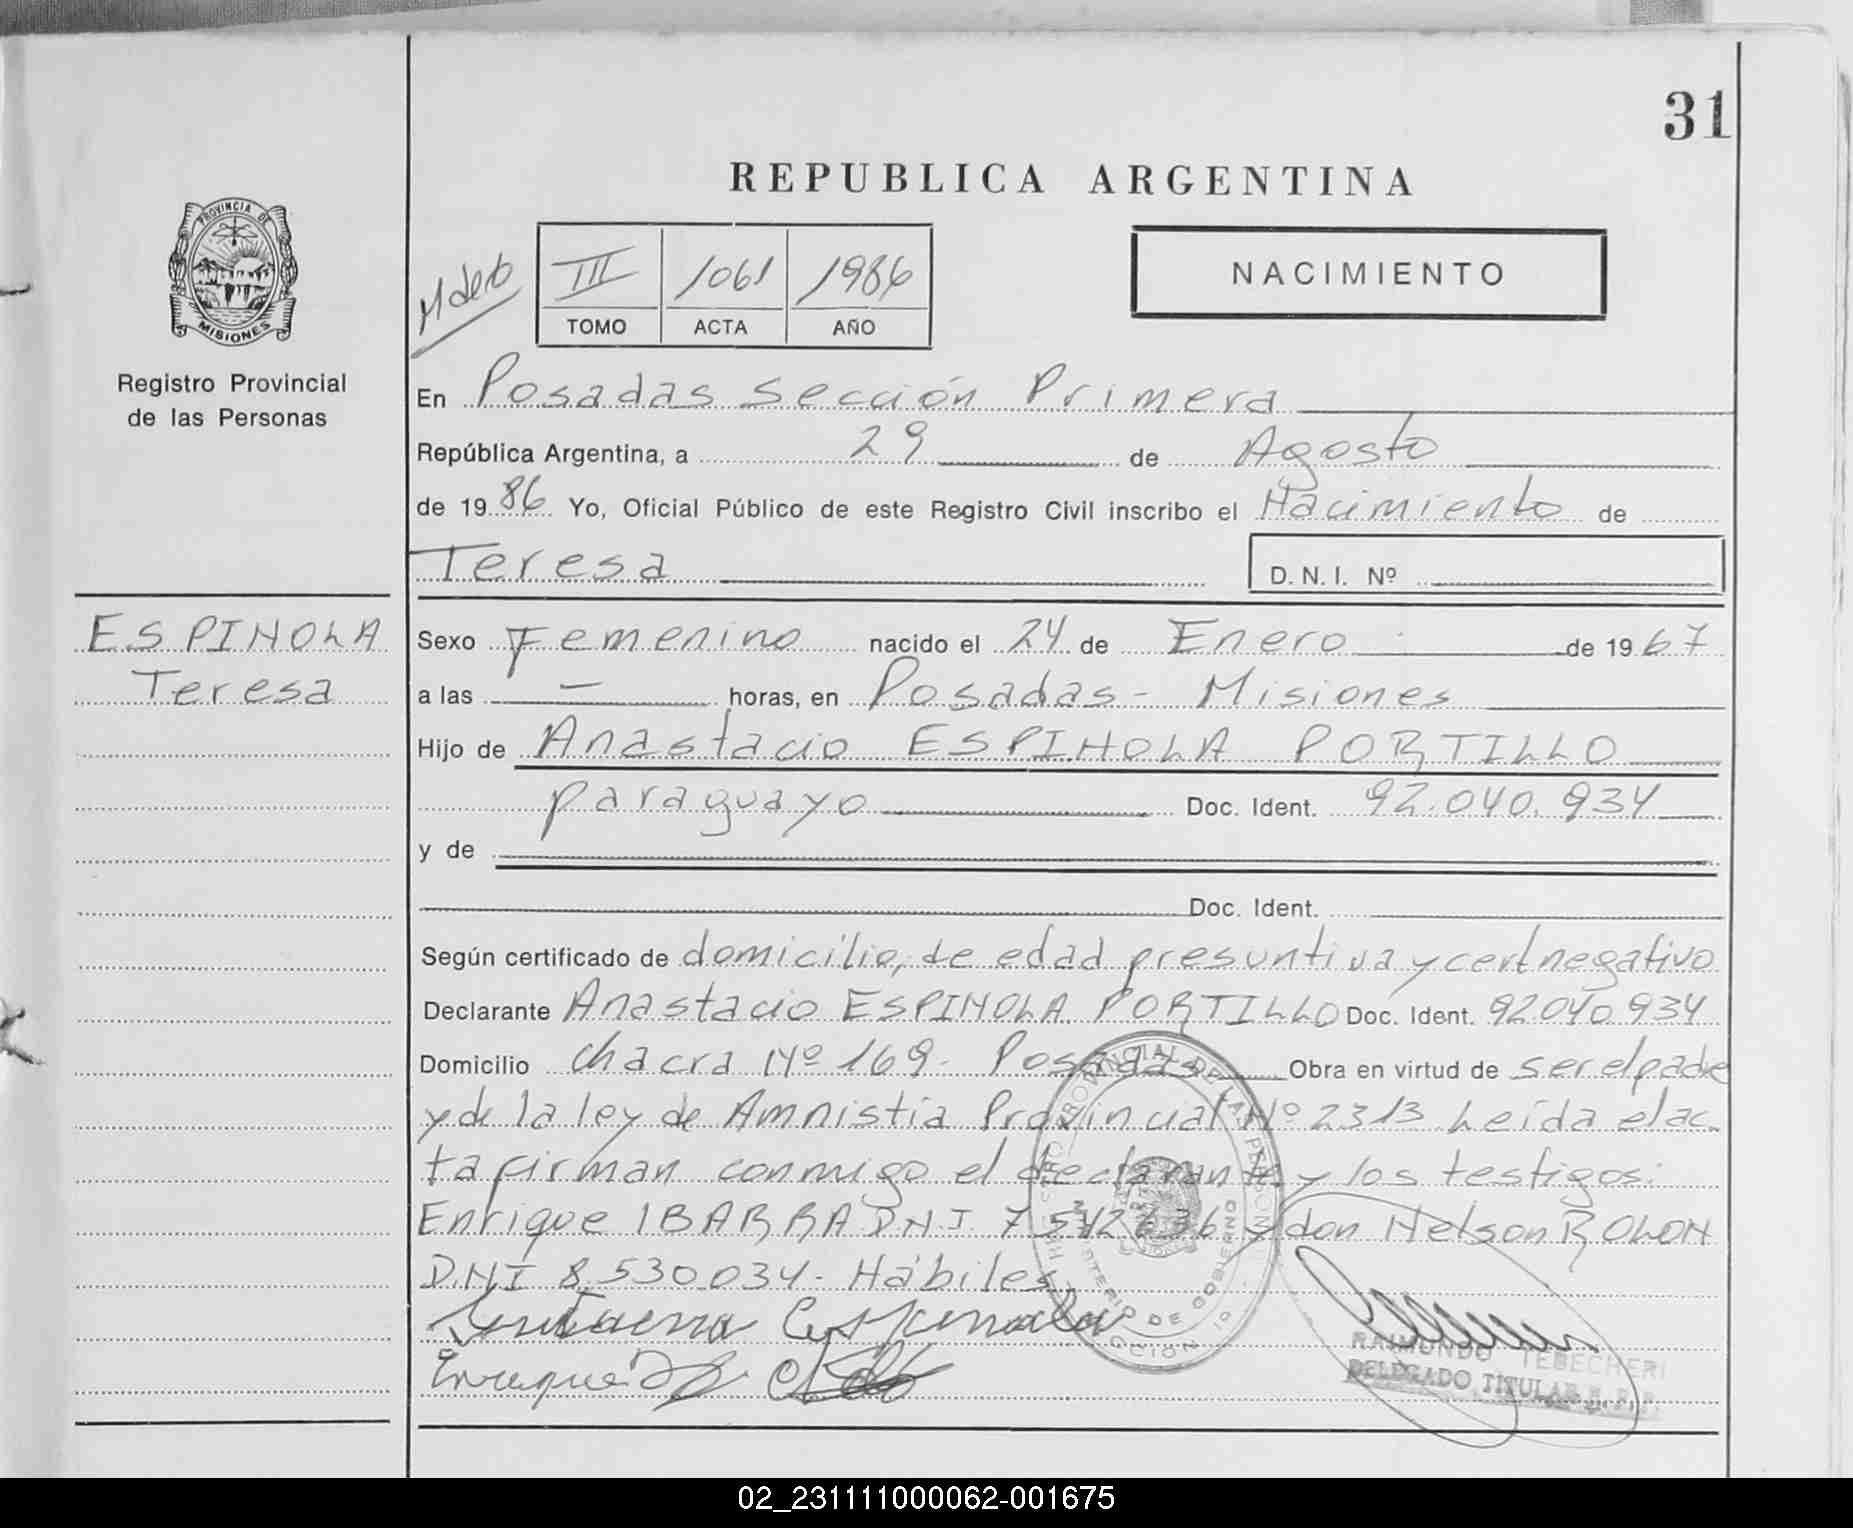 31
REPUBLICA ARGENTINA
PROVINCIA DE
MISIONES
Registro Provincial
de las Personas
III 1061 1986
TOMO ACTA AÑO
NACIMIENTO
En Posadas Sección Primera
República Argentina, a 29 de Agosto
de 1986 Yo, Oficial Público de este Registro Civil inscribo el Nacimiento de
Teresa D.N.I. Nº
ESPINOLA
Teresa
Sexo Femenino nacido el 24 de Enero de 1967
a las — horas, en Posadas - Misiones
Hijo de Anastacio ESPINOLA PORTILLO
paraguayo Doc. Ident. 92.040.934
y de
Doc. Ident.
Según certificado de domicilio, de edad presuntiva y cert negativo
Declarante Anastacio ESPINOLA PORTILLO Doc. Ident. 92040934
Domicilio Chacra Nº 169- Posadas Obra en virtud de ser el padre
y de la ley de Amnistía Provincial Nº 2313 Leída el ac
ta firman conmigo el declarante y los testigos:
Enrique IBARRA DNI 7542636 y don Nelson ROLON
DNI 8.530034- Hábiles
Espinola
Enrique
RAIMUNDO TEBECHERI
DELEGADO TITULAR
02_231111000062-001675